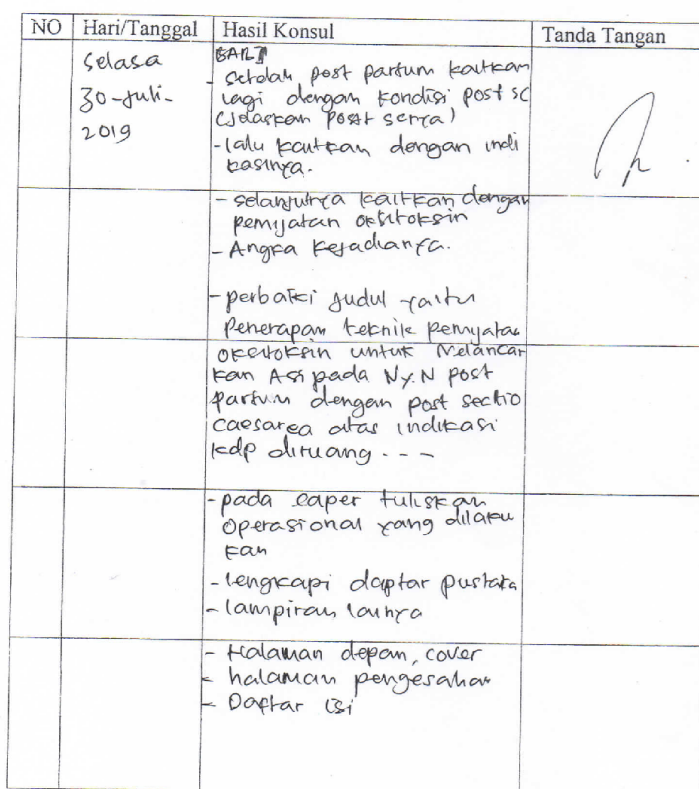 NO Hari/Tanggal Hasil Konsul Tanda Tangan
Selasa
30-Juli-
2019
BAB I
- Setelah post partum kaitkan
lagi dengan kondisi post SC
(Jelaskan post serta)
- lalu kaitkan dengan indi
kasinya.
- selanjutnya kaitkan dengan
pemijatan oksitoksin
- Angka kejadianya.
- perbaiki judul yaitu
Penerapan teknik pemijatan
oksitoksin untuk Melancar
kan Asi pada Ny.N post
partum dengan post sectio
caesarea atas indikasi
kdp diruang - - -
- pada
tuliskan
operasional yang dilaku
kan
- lengkapi daptar pustaka
- lampiran lainya
- Halaman depan, cover
- halaman pengesahan
- Daftar isi